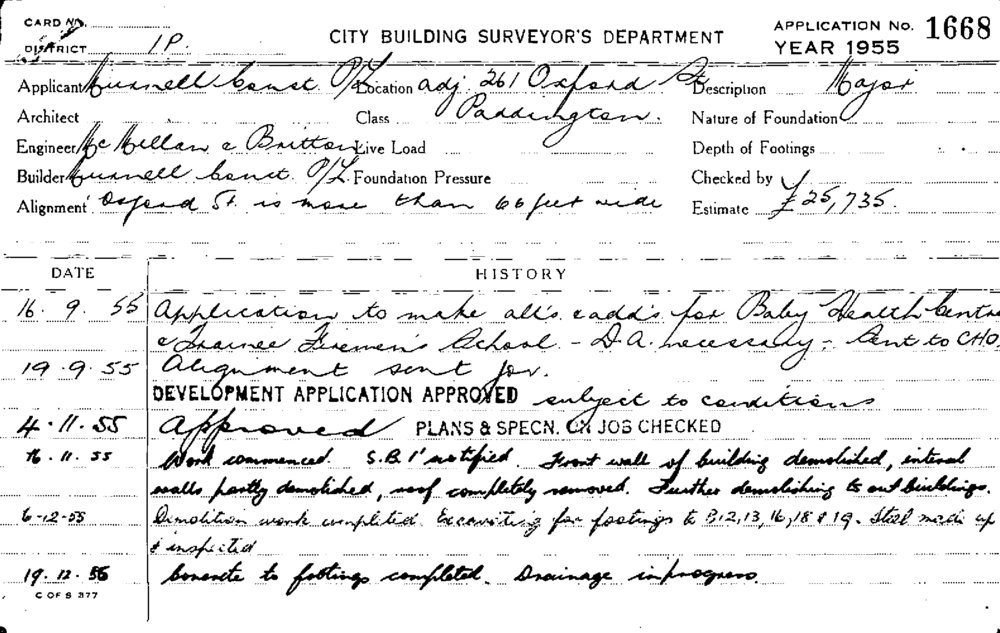 CARD No.
DISTRICT 1P.
CITY BUILDING SURVEYOR'S DEPARTMENT
APPLICATION No. 1668
YEAR 1955
Applicant Hunnell Const. P/L Location adj. 261 Oxford St Description Major
Architect Class Paddington. Nature of Foundation
Engineer McMillan & Britton Live Load Depth of Footings
Builder Hunnell Const. P/L Foundation Pressure Checked by
Alignment Oxford St. is more than 66 feet wide Estimate £25,735.
DATE HISTORY
16. 9. 55 Application to make alt's & add's for Baby Health Centre
& Trainee Firemen's School - D.A. necessary - Sent to CHO.
19.9.55 Alignment sent for.
DEVELOPMENT APPLICATION APPROVED subject to conditions
4.11.55 Approved PLANS & SPECN. ON JOB CHECKED
16.11.55 Work commenced. S.B.1' notified. Front wall of building demolished, internal
walls partly demolished, roof completely removed. Further demolishing to out buildings.
6-12-55 Demolition work completed. Excavating for footings to B12, 13, 16, 18 & 19. Steel made up
& inspected
19.12.55 Concrete to footings completed. Drainage in progress.
C OF S 377